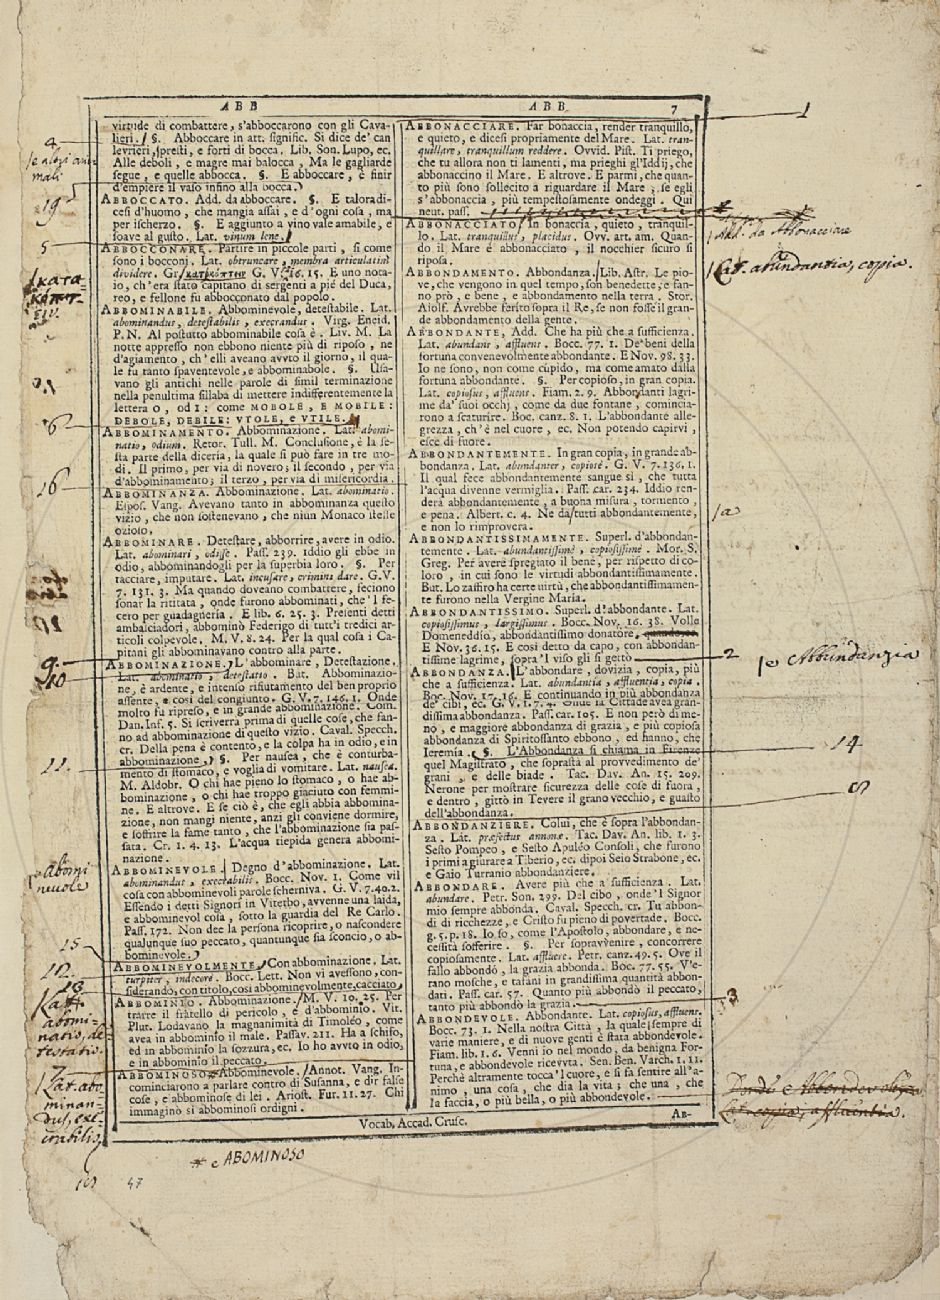 ABB
ABB
7
virtude di combattere, s'abboccarono con gli Cava-
lieri. §. Abboccare in att. signific. Si dice de' can
levrieri, spretti, e forti di bocca. Lib. Son. Lupo, ec.
Alle deboli, e magre mai balocca, Ma le gagliarde
segue, e quelle abbocca. §. E abboccare, è finir
d'empiere il vaso infino alla bocca.
ABBOCCATO. Add. da abboccare. §. E talora di-
cesi d'huomo, che mangia assai, e d'ogni cosa, ma
per ischerzo. §. E aggiunto a vino vale amabile, e
soave al gusto. Lat. vinum lene.
ABBOCCONARE. Partire in piccole parti, sì come
sono i bocconi. Lat. obtruncare, membra articulatim
dividere. Gr. κατακόπτειν G. V. 16. 15. E uno nota-
io, ch'era stato capitano di sergenti a piè del Duca,
reo, e fellone fu abbocconato dal popolo.
ABBOMINABILE. Abbominevole, detestabile. Lat.
abominandus, detestabilis, execrandus. Virg. Eneid.
P. N. Al postutto abbominabile cosa è. Liv. M. La
notte appresso non ebbono niente più di riposo, ne
d'agiamento, ch'elli aveano avvto il giorno, il qua-
le fu tanto spaventevole, e abbominabole. §. Usa-
vano gli antichi nelle parole di simil terminazione
nella penultima sillaba di mettere indifferentemente la
lettera O, od I: come MOBOLE, E MOBILE:
DEBOLE, DEBILE: VTOLE, e VTILE.
ABBOMINAMENTO. Abbominazione. Lat. abomi-
natio, odium. Retor. Tull. M. Conclusione, è la se-
sta parte della diceria, la quale si può fare in tre mo-
di. Il primo, per via di novero; il secondo, per via
d'abbominamento; il terzo, per via di misericordia.
ABBOMINANZA. Abbominazione. Lat. abominatio.
Espos. Vang. Avevano tanto in abbominanza questo
vizio, che non sostenevano, che niun Monaco stesse
ozioso.
ABBOMINARE. Detestare, abborrire, avere in odio.
Lat. abominari, odisse. Pass. 239. Iddio gli ebbe in
odio, abbominandogli per la superbia loro. §. Per
tacciare, imputare. Lat. incusare, crimini dare. G. V.
7. 131. 3. Ma quando doveano combattere, feciono
sonar la ritirata, onde furono abbominati, che 'l fe-
cero per guadagneria. E lib. 6. 25. 3. Presenti detti
ambasciadori, abbominò Federigo di tutt'i tredici ar-
ticoli colpevole. M. V. 8. 24. Per la qual cosa i Ca-
pitani gli abbominavano contro alla parte.
ABBOMINAZIONE. L'abbominare, Detestazione.
Lat. abominatio, detestatio. But. Abbominazio-
ne, è ardente, e intenso rifiutamento del ben proprio
assente, e così del congiunto. G. V. 7. 146. 1. Onde
molto fu ripreso, e in grande abbominazione. Com.
Dan. Inf. 5. Si scriverrà prima di quelle cose, che fan-
no ad abbominazione di questo vizio. Caval. Specch.
cr. Della pena è contento, e la colpa ha in odio, e in
abbominazione. §. Per nausea, che è conturba-
mento di stomaco, e voglia di vomitare. Lat. nausea.
M. Aldobr. O chi hae pieno lo stomaco, o hae ab-
bominazione, o chi hae troppo giaciuto con femmi-
ne. E altrove. E se ciò è, che egli abbia abbomina-
zione, non mangi niente, anzi gli conviene dormire,
e sofferire la fame tanto, che l'abbominazione sia pas-
sata. Cr. 1. 4. 13. L'acqua tiepida genera abbomi-
nazione.
ABBOMINEVOLE. Degno d'abbominazione. Lat.
abominandus, execrabilis. Bocc. Nov. 1. Come vil
cosa con abbominevoli parole scherniva. G. V. 7. 40. 2.
Essendo i detti Signori in Viterbo, avvenne una laida,
e abbominevol cosa, sotto la guardia del Re Carlo.
Pass. 172. Non dee la persona ricoprire, o nascondere
qualunque suo peccato, quantunque sia sconcio, o ab-
bominevole.
ABBOMINEVOLMENTE. Con abbominazione. Lat.
turpiter, indecorè. Bocc. Lett. Non vi avessono, con-
siderando, con titolo, così abbominevolmente, cacciato.
ABBOMINIO. Abbominazione. M. V. 10. 25. Per
trarre il fratello di pericolo, e d'abbominio. Vit.
Plut. Lodavano la magnanimità di Timoleò, come
avea in abbominio il male. Passav. 211. Ha a schifo,
ed in abbominio la sozzura, ec. Io ho avvto in odio,
e in abbominio il peccato.
ABBOMINOSO. Abbominevole. Annot. Vang. In-
cominciarono a parlare contro di Susanna, e dir false
cose, e abbominose di lei. Ariost. Fur. 11. 27. Chi
immaginò sì abbominosi ordigni.
ABBONACCIARE. Far bonaccia, render tranquillo,
e quieto, e dicesi propriamente del Mare. Lat. tran-
quillare, tranquillum reddere. Ovvid. Pist. Ti priego,
che tu allora non ti lamenti, ma prieghi gl'Iddij, che
abbonaccino il Mare. E altrove. E parmi, che quan-
to più sono sollecito a riguardare il Mare, se egli
s'abbonaccia, più tempestosamente ondeggi. Qui
neut. pass.
ABBONACCIATO. In bonaccia, quieto, tranquil-
lo. Lat. tranquillus, placidus. Ovv. art. am. Quan-
do il Mare è abbonacciato, il nocchier sicuro si
riposa.
ABBONDAMENTO. Abbondanza. Lib. Astr. Le pio-
ve, che vengono in quel tempo, son benedette, e fan-
no prò, e bene, e abbondamento nella terra. Stor.
Aiolf. Avrebbe ferito sopra il Re, se non fosse il gran-
de abbondamento della gente.
ABBONDANTE, Add. Che ha più che a sufficienza.
Lat. abundans, affluens. Bocc. 77. 1. De' beni della
fortuna convenevolmente abbondante. E Nov. 98. 33.
Io ne sono, non come cupido, ma come amato dalla
fortuna abbondante. §. Per copioso, in gran copia.
Lat. copiosus, affluens. Fiam. 2. 9. Abbondanti lagri-
me da' suoi occhj, come da due fontane, comincia-
rono a scaturire. Boc. canz. 8. 1. L'abbondante alle-
grezza, ch'è nel cuore, ec. Non potendo capirvi,
esce di fuore.
ABBONDANTEMENTE. In gran copia, in grande ab-
bondanza. Lat. abundanter, copiosè. G. V. 7. 136. 1.
Il qual fece abbondantemente sangue sì, che tutta
l'acqua divenne vermiglia. Pass. car. 234. Iddio ren-
derà abbondantemente, a buona misura, tormento,
e pena. Albert. c. 4. Ne da tutti abbondantemente,
e non lo rimprovera.
ABBONDANTISSIMAMENTE. Superl. d'abbondan-
temente. Lat. abundantissimè, copiosissimè. Mor. S.
Greg. Per avere spregiato il bene, per rispetto di co-
loro, in cui sono le virtudi abbondantissimamente.
But. Lo zaffiro ha certe virtù, che abbondantissimamen-
te furono nella Vergine Maria.
ABBONDANTISSIMO. Superl. d'abbondante. Lat.
copiosissimus, largissimus. Bocc. Nov. 16. 38. Volle
Domeneddio, abbondantissimo donatore,
E Nov. 36. 15. E così detto da capo, con abbondan-
tissime lagrime, sopra 'l viso gli si gettò
ABBONDANZA. L'abbondare, dovizia, copia, più
che a sufficienza. Lat. abundantia, affluentia, copia.
Boc. Nov. 17. 16. E continuando in più abbondanza
de' cibi, ec. G. V. 1. 7. 4. Onde la Cittade avea gran-
dissima abbondanza. Pass. car. 105. E non però di me-
no, e maggiore abbondanza di grazia, e più copiosa
abbondanza di Spiritossanto ebbono, ed hanno, che
Ieremia. §. L'Abbondanza si chiama in Firenze
quel Magistrato, che soprastà al provvedimento de'
grani, e delle biade. Tac. Dav. An. 15. 209.
Nerone per mostrare sicurezza delle cose di fuora,
e dentro, gittò in Tevere il grano vecchio, e guasto
dell'abbondanza.
ABBONDANZIERE. Colui, che è sopra l'abbondan-
za. Lat. præfectus annonæ. Tac. Dav. An. lib. 1. 3.
Sesto Pompeo, e Sesto Apuléo Consoli, che furono
i primi a giurare a Tiberio, ec. dipoi Seio Strabone, ec.
e Gaio Turranio abbondanziere.
ABBONDARE. Avere più che a sufficienza. Lat.
abundare. Petr. Son. 299. Del cibo, onde 'l Signor
mio sempre abbonda. Caval. Specch. cr. Tu abbon-
di di ricchezze, e Cristo fu pieno di povertade. Bocc.
g. 5. p. 18. Io so, come l'Apostolo, abbondare, e ne-
cessità sofferire. §. Per sopravvenire, concorrere
copiosamente. Lat. affluere. Petr. canz. 49. 5. Ove il
fallo abbondò, la grazia abbonda. Boc. 77. 55. V'e-
rano mosche, e tafani in grandissima quantità abbon-
dati. Pass. car. 57. Quanto più abbondò il peccato,
tanto più abbondò la grazia.
ABBONDEVOLE. Abbondante. Lat. copiosus, affluens.
Bocc. 73. 1. Nella nostra Città, la quale sempre di
varie maniere, e di nuove genti è stata abbondevole.
Fiam. lib. 1. 6. Venni io nel mondo, da benigna For-
tuna, e abbondevole ricevuta. Sen. Ben. Varch. 1. 11.
Perchè altramente tocca 'l cuore, e si fa sentire all'a-
nimo, una cosa, che dia la vita; che una, che
la faccia, o più bella, o più abbondevole.
AB-
Vocab. Accad. Crusc.
4
e altri ani-
mali
19
5
κατα-
κόπτ-
ειν.
6
16
9.
10
11.
abomi
nevole
15
12.
13
Lat.
abomi-
natio, de-
testatio.
Lat. abo-
minan-
dus, exe-
crabilis
1
Add. da Abbonacciare
Lat. abundantia, copia.
a
2
e Abbundanzia
14
8
3
Lat. copia, affluentia.
e ABOMINOSO
47